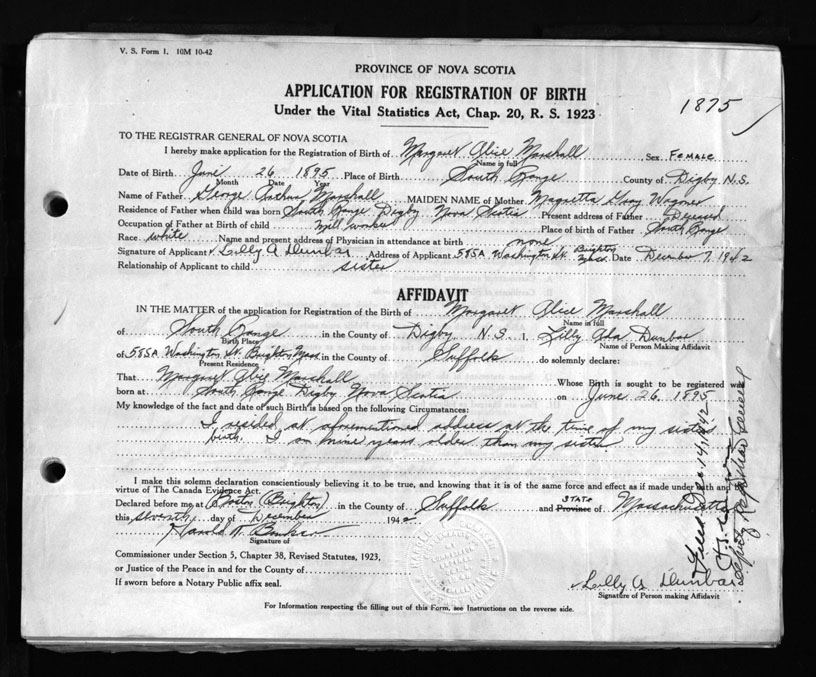 V. S. Form 1. 10M 10-42
PROVINCE OF NOVA SCOTIA
APPLICATION FOR REGISTRATION OF BIRTH
Under the Vital Statistics Act, Chap. 20, R. S. 1923
1875
TO THE REGISTRAR GENERAL OF NOVA SCOTIA
I hereby make application for the Registration of Birth of Margaret Alice Marshall Sex FEMALE
Name in full
Date of Birth June 26 1895 Place of Birth South Range County of Digby N.S.
Month Date Year
Name of Father George Arthur Marshall MAIDEN NAME of Mother Magretta Gray Wagner
Residence of Father when child was born South Range Digby Nova Scotia Present address of Father Deceased
Occupation of Father at Birth of child mill worker Place of birth of Father South Range
Race white Name and present address of Physician in attendance at birth none
Signature of Applicant Lilly A Dunbar Address of Applicant 585A Washington St. Brighton Mass. Date December 7, 1942
Relationship of Applicant to child sister
AFFIDAVIT
IN THE MATTER of the application for Registration of the Birth of Margaret Alice Marshall
Name in full
of South Range in the County of Digby N.S. I, Lilly Dunbar
Birth Place Name of Person Making Affidavit
of 585A Washington St. Brighton Mass in the County of Suffolk do solemnly declare:
Present Residence
That Margaret Alice Marshall Whose Birth is sought to be registered was
born at South Range Digby Nova Scotia on June 26, 1895
My knowledge of the fact and date of such Birth is based on the following Circumstances:
I resided at aforementioned address at the time of my sister
birth. I am nine years older than my sister.
I make this solemn declaration conscientiously believing it to be true, and knowing that it is of the same force and effect as if made under oath and by
virtue of The Canada Evidence Act.
Declared before me at Boston (Brighton) in the County of Suffolk and STATE Province of Massachusetts
this seventh day of December 1942
Harold
Signature of
Commissioner under Section 5, Chapter 38, Revised Statutes, 1923,
or Justice of the Peace in and for the County of
If sworn before a Notary Public affix seal.
Lilly A Dunbar
Signature of Person making Affidavit
For Information respecting the filling out of this Form, see Instructions on the reverse side.
Filed Dec. 14, 1942
Deputy Registrar General